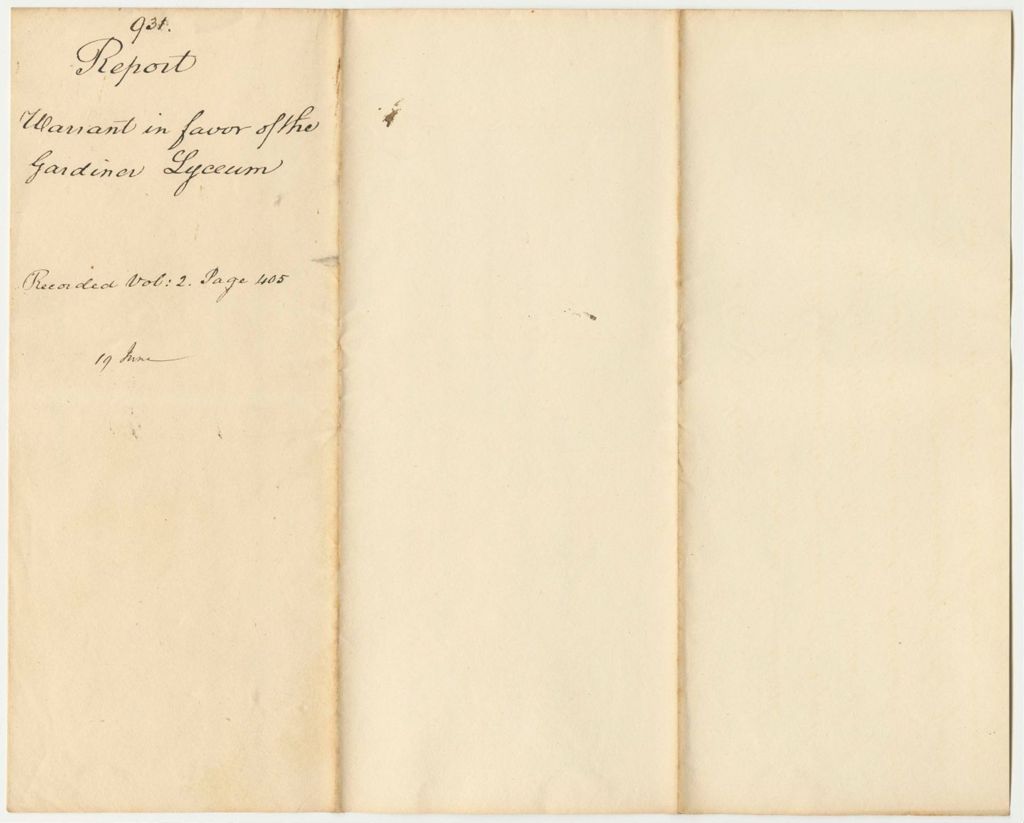 931.
Report
Warrant in favor of the
Gardiner Lyceum
Recorded Vol: 2. Page 405
19 June